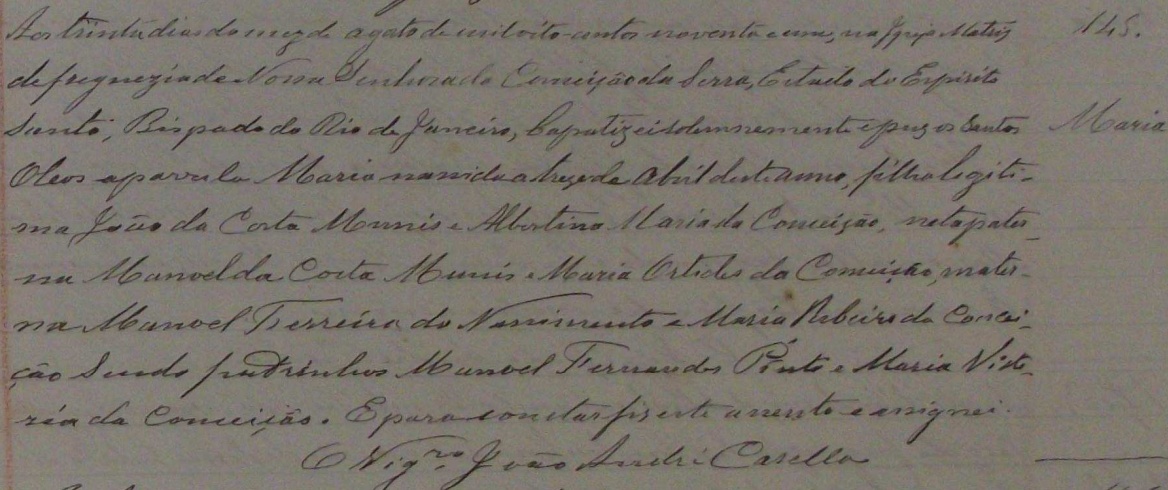 Aos trinta dias do mez de agosto de mil oito centos noventa e um, na Igreja Matriz 145.
de freguezia de Nossa Senhora da Conceição da Serra, Estado do Espirito
Santo, Bispado do Rio de Janeiro, bapatizei solemnemente e puz os Santos Maria
Oleos a parvula Maria nascida a treze de Abril deste anno, filha legiti-
ma João da Costa Munis e Albertina Maria da Conceição, neta pater-
na Manoel da Costa Munis e Maria da Conceição, mater-
na Manoel Ferreira do Nascimento e Maria Ribeiro da Concei-
ção Sendo padrinhos Manoel Fernandes Pinto e Maria Victo-
ria da Conceição. E para constar fiz este assento e assignei.
O Vigro João André Casella